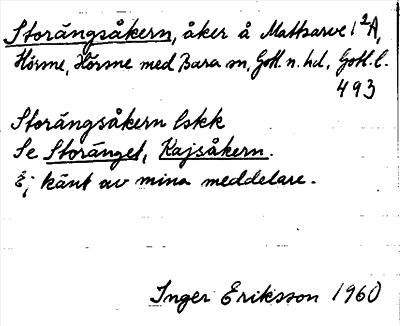 Storängsåkern, åker å Mattsarve 1²A,
Hörsne, Hörsne med Bara sn, Gotl. n. hd, Gotl. l.
493
Storängsåkern lskk
Se Storänget, Kajsåkern.
Ej känt av mina meddelare.
Inger Eriksson 1960